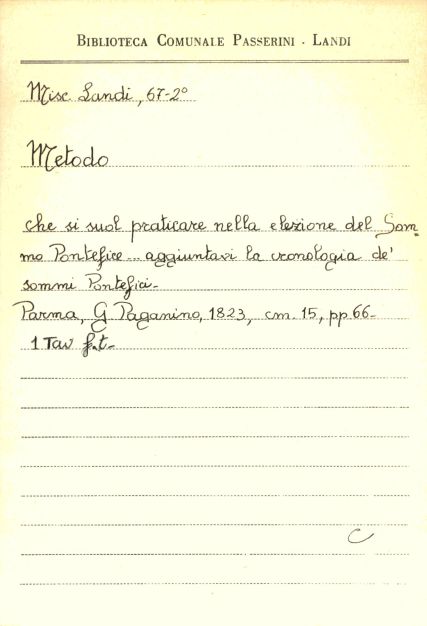 BIBLIOTECA COMUNALE PASSERINI - LANDI
Misc. Landi, 67-2°
Metodo
che si suol praticare nella elezione del Som-
mo Pontefice... aggiuntavi la cronologia de'
sommi Pontefici-
Parma, G Paganino, 1823, cm. 15, pp. 66-
1 Tav f.t-
C